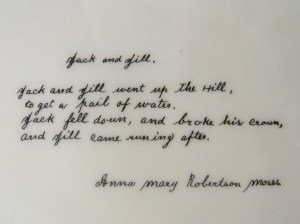 Jack and Jill.
Jack and Jill went up the Hill,
to get a pail of water.
Jack fell down, and broke his crown,
and Jill came runing after.
Anna Mary Robertson Moses